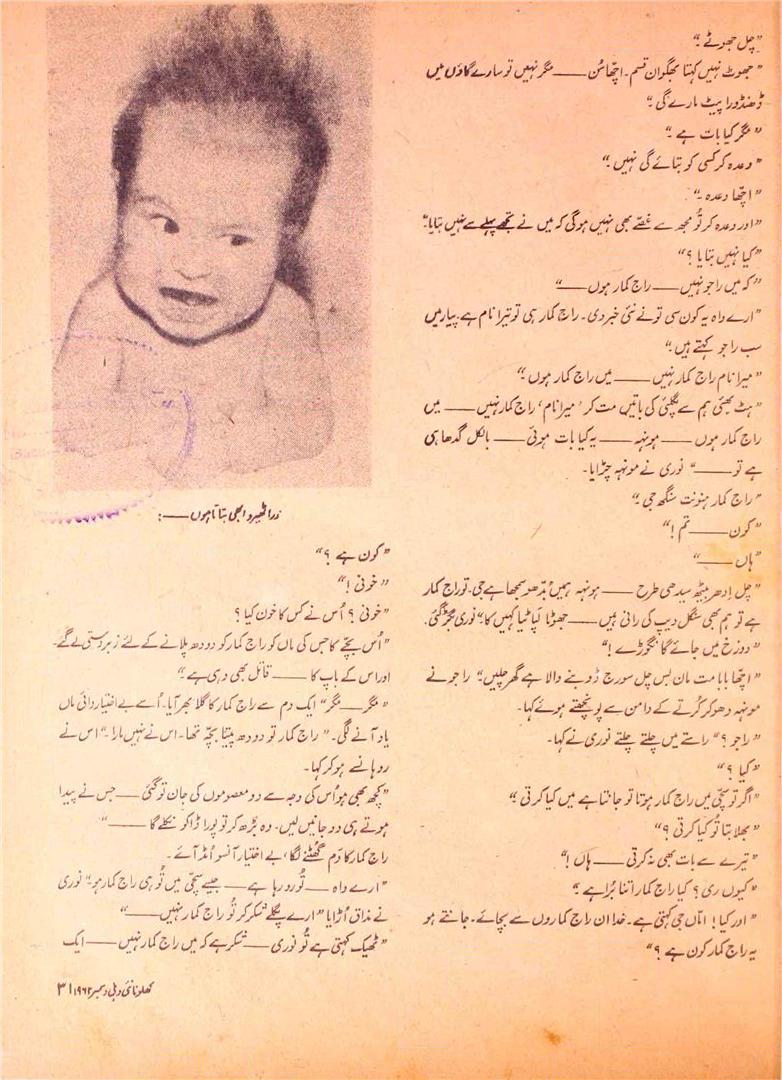 ”چل جھوٹے۔“
”جھوٹ نہیں کہتا بھگوان قسم۔ اچھا سُن —— مگر نہیں تو سارے گاؤں میں
ڈھنڈورا پیٹ مارے گی۔“
”مگر کیا بات ہے۔“
”وعدہ کر کسی کو بتائے گی نہیں۔“
”اچھا وعدہ۔“
”اور وعدہ کر تُو مجھ سے غصّے بھی نہیں ہوگی کہ میں نے تجھے پہلے سے نہیں بتایا۔“
”کیا نہیں بتایا؟“
”کہ میں راجو نہیں —— راج کمار ہوں ——“
”ارے واہ یہ کون سی تونے نئی خبر دی۔ راج کمار ہی تو تیرا نام ہے۔ پیار میں
سب راجو کہتے ہیں۔“
”میرا نام راج کمار نہیں —— میں راج کمار ہوں۔“
”ہٹ بھئی ہم سے پگلپنی کی باتیں مت کر ’میرا نام‘ راج کمار نہیں —— میں
راج کمار ہوں —— ہونہہ —— یہ کیا بات ہوئی —— بالکل گدھا ہی
ہے تو ——“ نوری نے مونہہ چڑایا۔
”راج کمار ہنونت سنگھ جی۔“
”کون —— تم!“
”ہاں ——“
”چل اِدھر بیٹھ سیدھی طرح —— ہونہہ ہمیں بُدّھو سمجھا ہے جی۔ تو راج کمار
ہے تو ہم بھی سنگل دیپ کی رانی ہیں —— جھوٹا لَپاٹیا کہیں کا۔“ نوری بگڑ گئی۔
”دوزخ میں جائے گا نگوڑے!“
”اچھا بابا مت مان بس چل سورج ڈوبنے والا ہے گھر چلیں۔“ راجو نے
مونہہ دھو کر کُرتے کے دامن سے پونچھتے ہوئے کہا۔
”راجو؟“ راستے میں چلتے چلتے نوری نے کہا۔
”کیا؟“
”اگر تو سچّی میں راج کمار ہوتا تو جانتا ہے میں کیا کرتی۔“
”بھلا بتا تُو کیا کرتی؟“
”تیرے سے بات بھی نہ کرتی —— ہاں!“
”کیوں ری؟ کیا راج کمار اتنا بُرا ہے۔“
”اور کیا! امّاں جی کہتی ہے۔ خدا ان راج کماروں سے بچائے۔ جانتے ہو
یہ راج کمار کون ہے؟“
ذرا ٹھیرو ابھی بتاتا ہوں ——:
”کون ہے؟“
”خونی!“
”خونی؟ اُس نے کس کا خون کیا؟
”اُس بچّے کا جس کی ماں کو راج کمار کو دودھ پلانے کے لئے زبردستی لے گئے۔
اور اس کے باپ کا —— قاتل بھی وہی ہے۔“
”مگر —— مگر“ ایک دم سے راج کمار کا گلا بھر آیا۔ اُسے بے اختیار دائی ماں
یاد آنے لگی۔ ”راج کمار تو دودھ پیتا بچّہ تھا۔ اس نے نہیں مارا۔“ اس نے
روہانسے ہوکر کہا۔
”کچھ بھی ہو اُس کی وجہ سے دو معصوموں کی جان تو گئی —— جس نے پیدا
ہوتے ہی دو جانیں لیں۔ وہ بڑھ کر تو پورا ڈاکو نکلے گا ——“
راج کمار کا دَم گھُٹنے لگا، بے اختیار آنسو اُمڈ آئے۔
”ارے واہ —— تُو رو رہا ہے —— جیسے سچّی میں تُو ہی راج کمار ہو۔“ نوری
نے مذاق اُڑایا ”ارے پگلے شکر کر تُو راج کمار نہیں ——“
”ٹھیک کہتی ہے تُو نوری —— شکر ہے کہ میں راج کمار نہیں —— ایک
کھلونا نئی دہلی دسمبر ۱۹۶۲ ۳۱